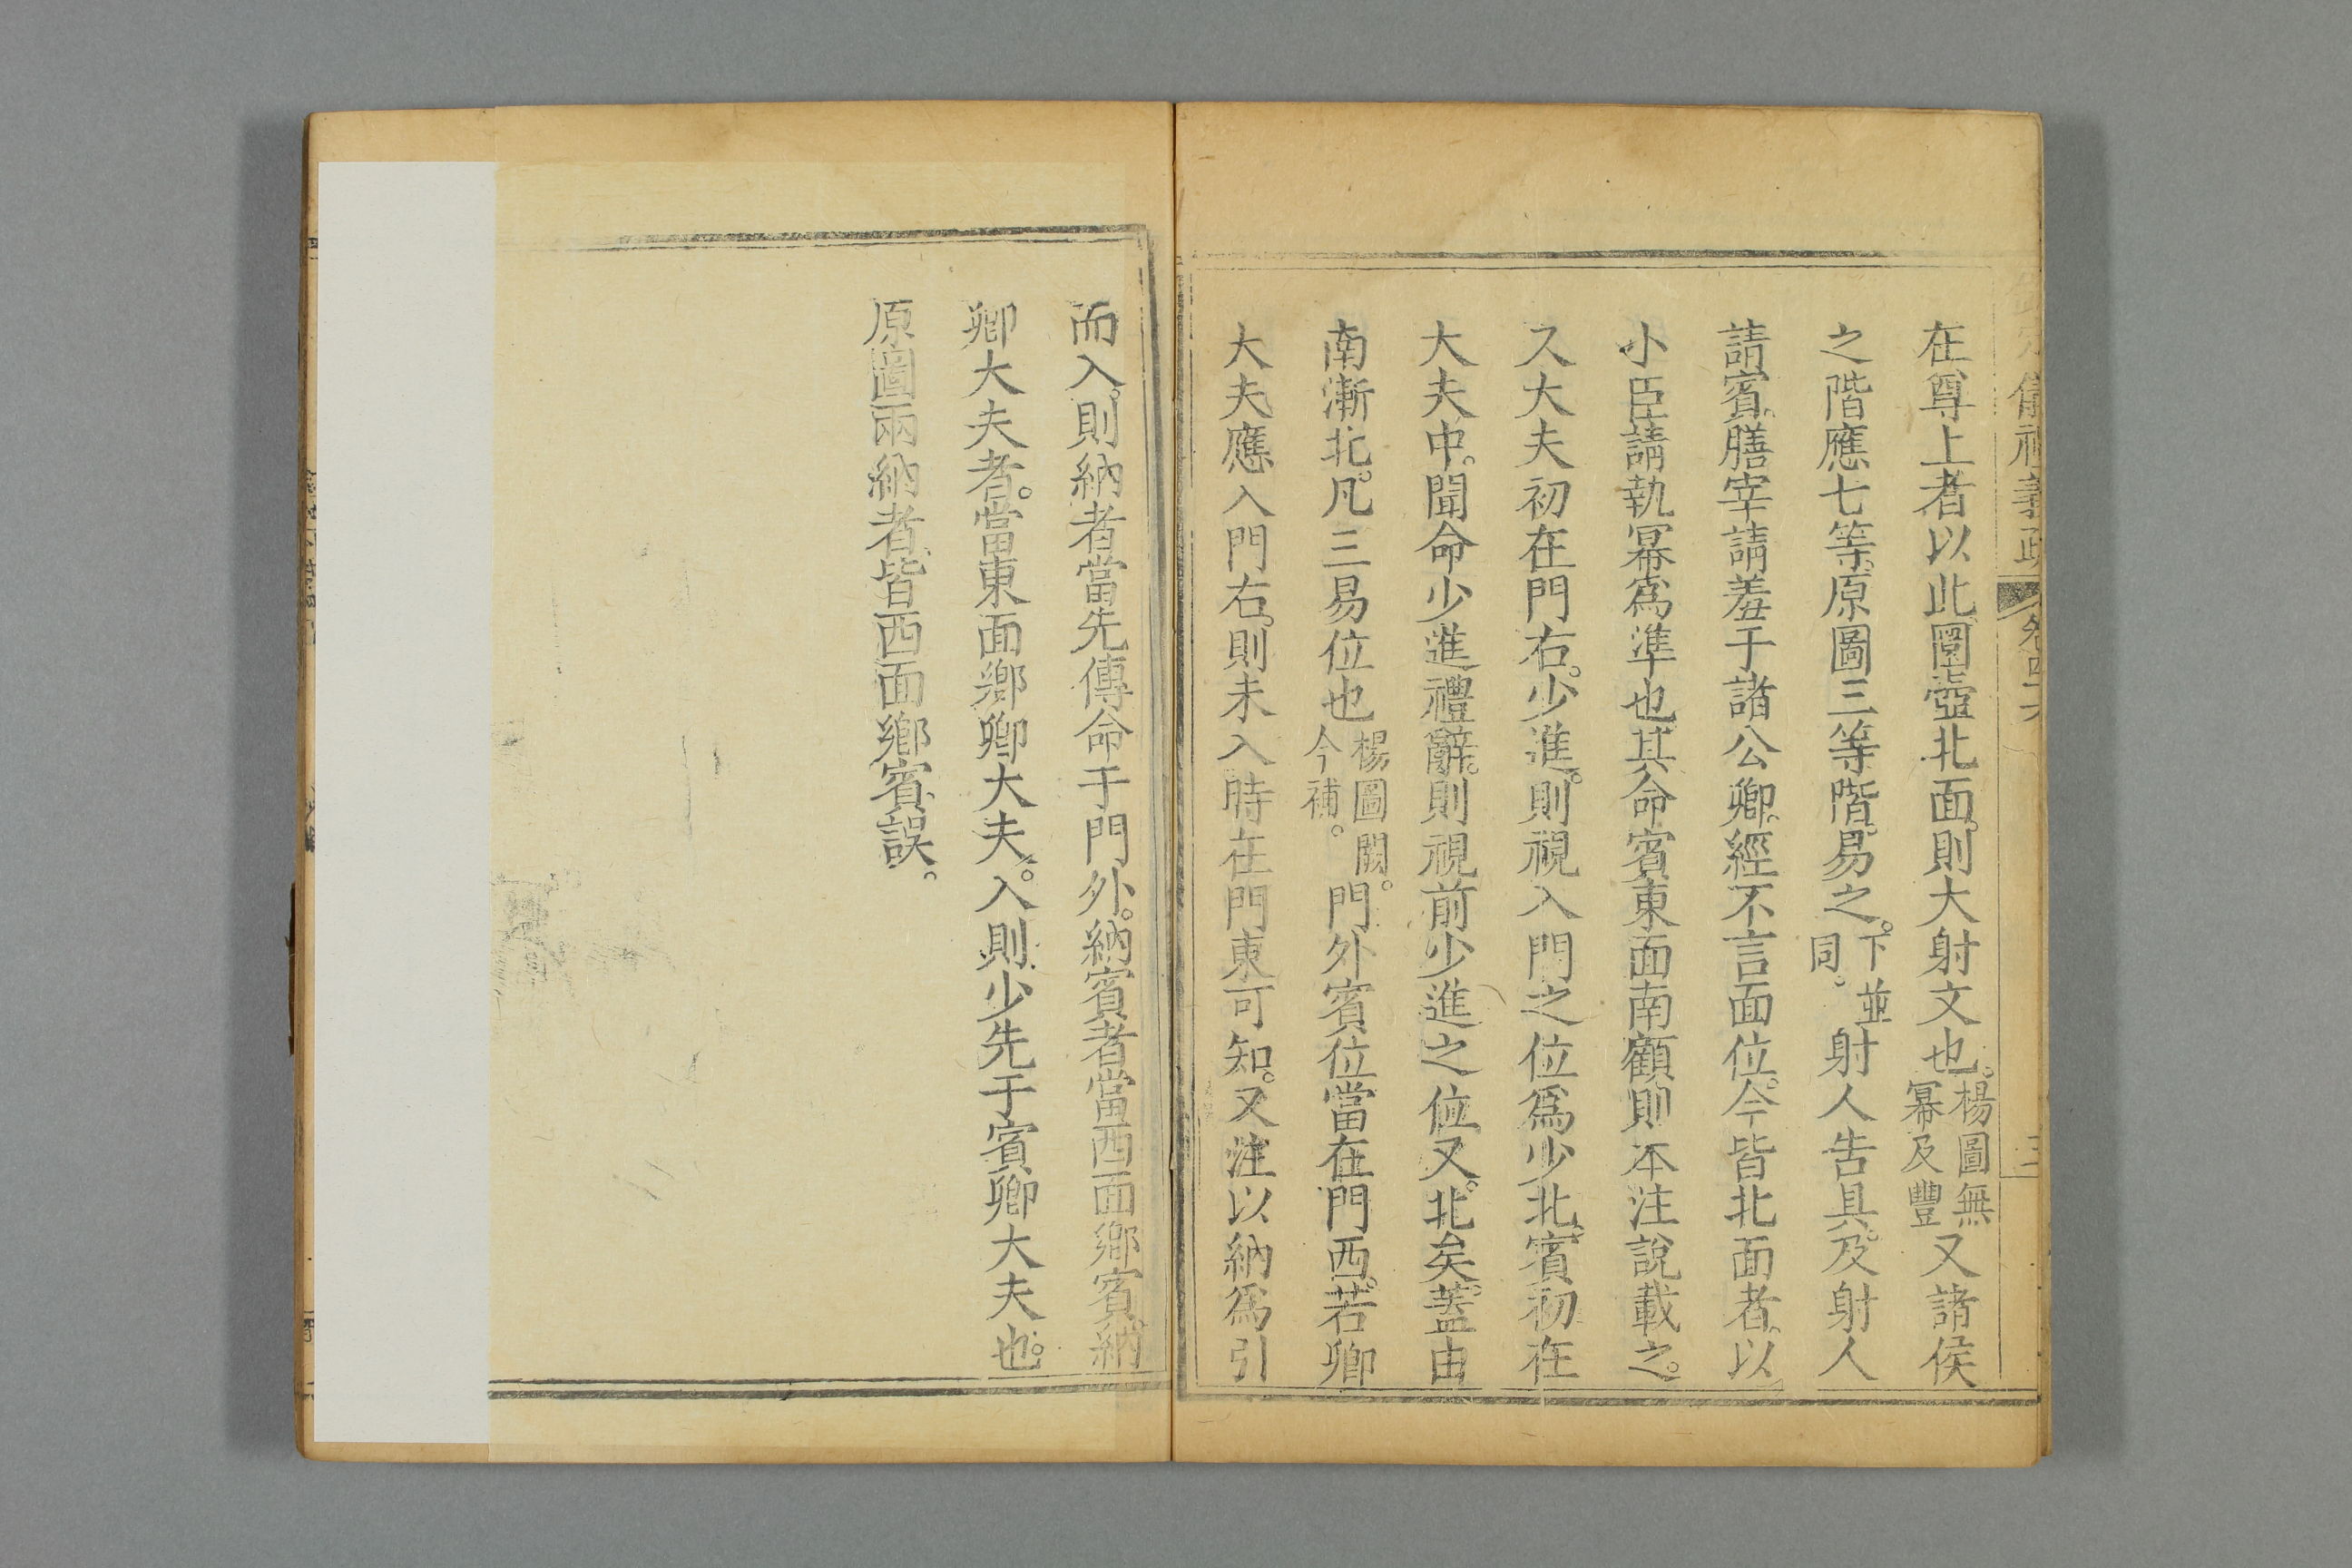 儀禮義疏 卷四十六 三
在尊上者以此圜壺北面則大射文也。楊圖無冪及豐又諸侯
之階應七等。原圖三等階。易之。下並同。射人告具。及射人
請賓。膳宰請羞于諸公卿。經不言面位。今皆北面者。以
小臣請執冪爲準也。其命賓東面南顧。則本注說載之。
又大夫初在門右。少進。則視入門之位爲少北。賓初在
大夫中。聞命少進禮辭。則視前少進之位又。北矣。蓋由
南漸北。凡三易位也楊圖闕。今補。門外賓位當在門西。若卿
大夫應入門右。則未入時在門東可知。又注以納爲引
而入。則納者當先傳命于門外。納賓者當西面鄉賓。納
卿大夫者。當東面鄉卿大夫。入則少先于賓卿大夫也。
原圖兩納者。皆西面鄉賓。誤。